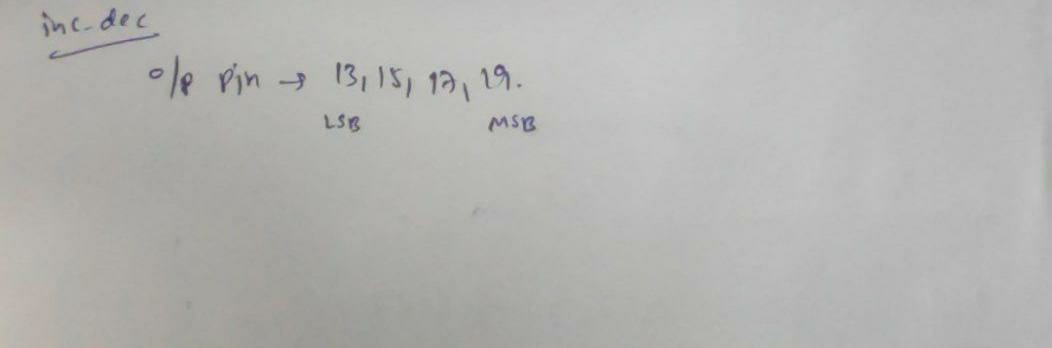 inc-dec
o/p pin → 13, 15, 17, 19.
LSB MSB